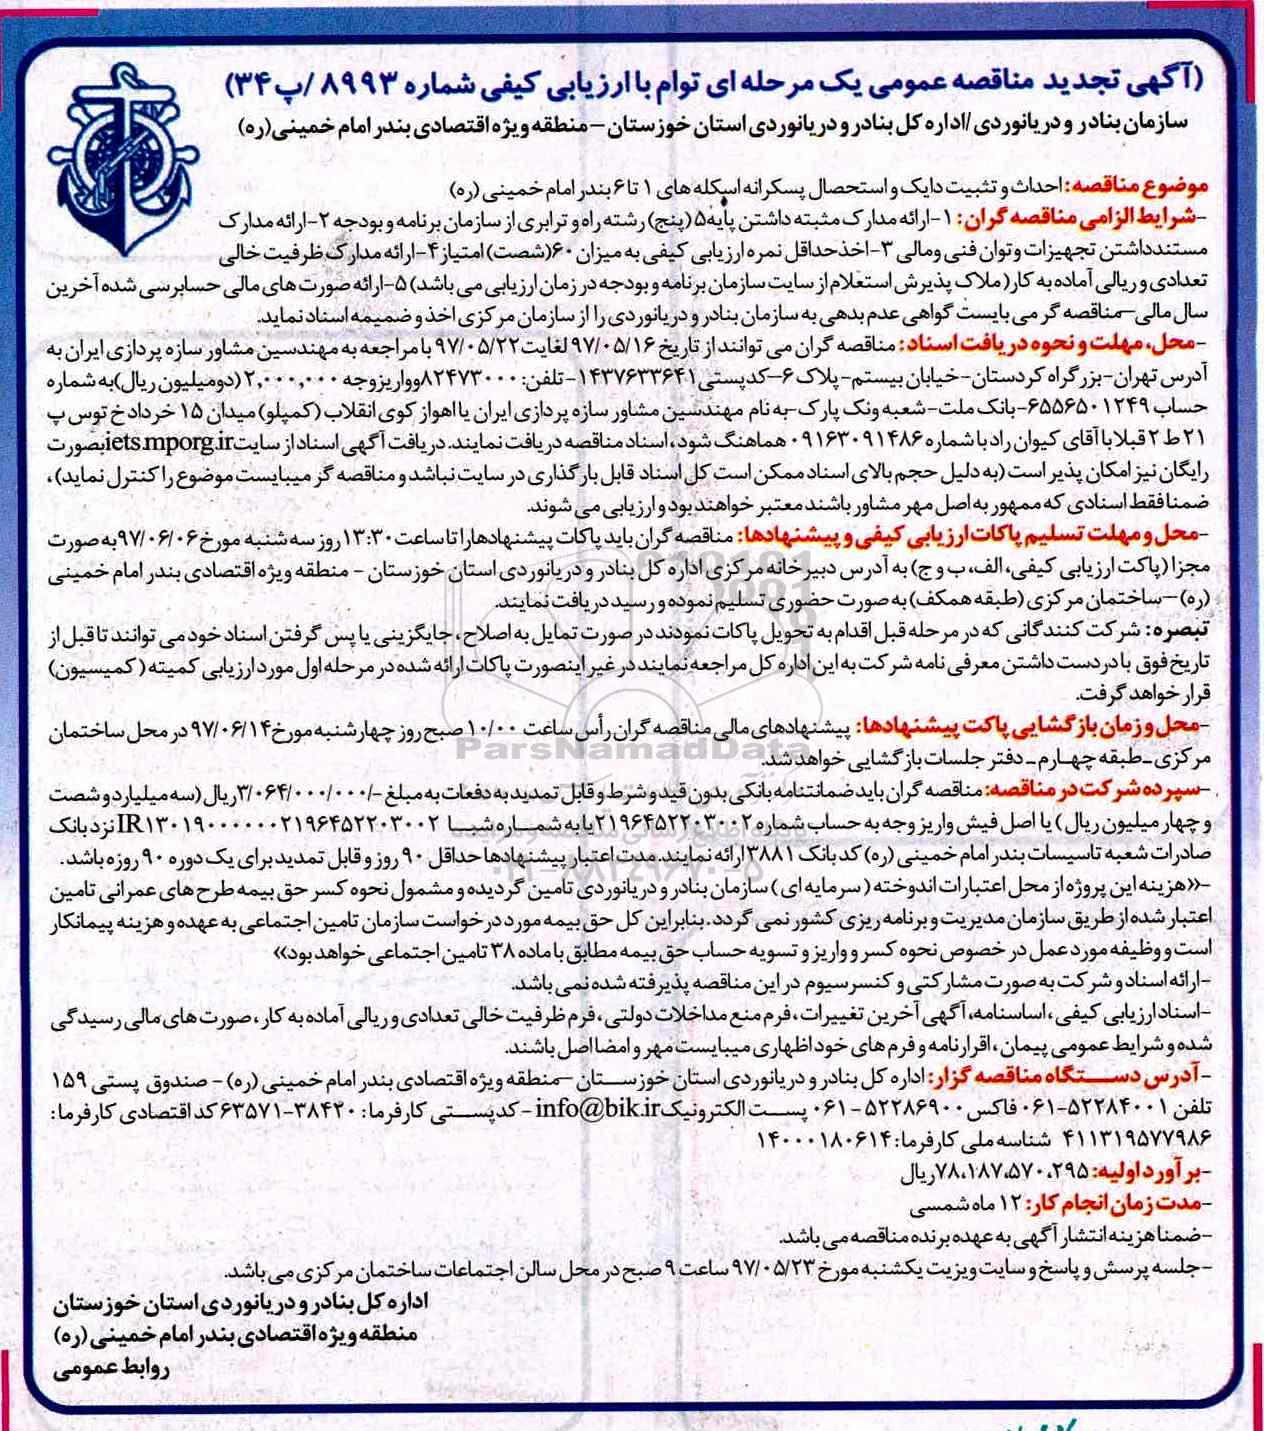 (آگهی تجدید مناقصه عمومی یک مرحله ای توام با ارزیابی کیفی شماره ۸۹۹۳ /پ۳۴)
سازمان بنادر و دریانوردی /اداره کل بنادر و دریانوردی استان خوزستان –منطقه ویژه اقتصادی بندر امام خمینی(ره)
موضوع مناقصه: احداث و تثبیت دایک و استحصال پسکرانه اسکله های ۱ تا ۶ بندر امام خمینی (ره)
-شرایط الزامی مناقصه گران: ۱-ارائه مدارک مثبته داشتن پایه۵ (پنج) رشته راه و ترابری از سازمان برنامه و بودجه ۲-ارائه مدارک
مستندداشتن تجهیزات وتوان فنی ومالی ۳-اخذحداقل نمره ارزیابی کیفی به میزان ۶۰(شصت) امتیاز۴-ارائه مدارک ظرفیت خالی
تعدادی و ریالی آماده به کار( ملاک پذیرش استعلام از سایت سازمان برنامه و بودجه در زمان ارزیابی می باشد) ۵-ارائه صورت های مالی حسابرسی شده آخرین
سال مالی–مناقصه گر می بایست گواهی عدم بدهی به سازمان بنادر و دریانوردی را از سازمان مرکزی اخذ و ضمیمه اسناد نماید.
-محل، مهلت و نحوه دریافت اسناد: مناقصه گران می توانند از تاریخ ۹۷/۰۵/۱۶ لغایت ۹۷/۰۵/۲۲ با مراجعه به مهندسین مشاور سازه پردازی ایران به
آدرس تهران-بزرگراه کردستان-خیابان بیستم-پلاک ۶–کدپستی۱۴۳۷۶۳۳۶۴۱-تلفن: ۸۲۴۷۳۰۰۰وواریزوجه ۲,۰۰۰,۰۰۰ (دومیلیون ریال)به شماره
حساب ۶۵۵۶۵۰۱۲۴۹-بانک ملت-شعبه ونک پارک-به نام مهندسین مشاور سازه پردازی ایران یا اهواز کوی انقلاب (کمپلو) میدان ۱۵ خرداد خ توس پ
۲۱ ط ۲ قبلا با آقای کیوان راد با شماره ۰۹۱۶۳۰۹۱۴۸۶ هماهنگ شود ، اسناد مناقصه دریافت نمایند. دریافت آگهی اسناد از سایت iets.mporg.irبصورت
رایگان نیز امکان پذیر است (به دلیل حجم بالای اسناد ممکن است کل اسناد قابل بارگذاری در سایت نباشد و مناقصه گر میبایست موضوع را کنترل نماید)،
ضمنا فقط اسنادی که ممهور به اصل مهر مشاور باشند معتبر خواهند بود و ارزیابی می شوند.
-محل و مهلت تسلیم پاکات ارزیابی کیفی و پیشنهادها: مناقصه گران باید پاکات پیشنهادها را تا ساعت ۱۳:۳۰ روز سه شنبه مورخ ۹۷/۰۶/۰۶به صورت
مجزا (پاکت ارزیابی کیفی، الف، ب و ج) به آدرس دبیرخانه مرکزی اداره کل بنادر و دریانوردی استان خوزستان – منطقه ویژه اقتصادی بندر امام خمینی
(ره)–ساختمان مرکزی (طبقه همکف) به صورت حضوری تسلیم نموده و رسید دریافت نمایند.
تبصره: شرکت کنندگانی که در مرحله قبل اقدام به تحویل پاکات نمودند در صورت تمایل به اصلاح، جایگزینی یا پس گرفتن اسناد خود می توانند تا قبل از
تاریخ فوق با در دست داشتن معرفی نامه شرکت به این اداره کل مراجعه نمایند در غیر اینصورت پاکات ارائه شده در مرحله اول مورد ارزیابی کمیته ( کمیسیون)
قرار خواهد گرفت.
-محل و زمان بازگشایی پاکت پیشنهادها: پیشنهادهای مالی مناقصه گران رأس ساعت ۱۰/۰۰ صبح روز چهارشنبه مورخ ۹۷/۰۶/۱۴ در محل ساختمان
مرکزی ـ طبقه چهارم ـ دفتر جلسات بازگشایی خواهد شد.
ParsNamadData
-سپرده شرکت در مناقصه: مناقصه گران باید ضمانتنامه بانکی بدون قید و شرط و قابل تمدید به دفعات به مبلغ -/۳/۰۶۴/۰۰۰/۰۰۰ریال (سه میلیارد و شصت
و چهار میلیون ریال ) یا اصل فیش واریز وجه به حساب شماره ۲۱۹۶۴۵۲۲۰۳۰۰۲ یا به شماره شبا IR۱۳۰۱۹۰۰۰۰۰۰۰۲۱۹۶۴۵۲۲۰۳۰۰۲ نزد بانک
صادرات شعبه تاسیسات بندر امام خمینی (ره) کد بانک ۳۸۸۱ ارائه نمایند. مدت اعتبار پیشنهادها حداقل ۹۰ روز و قابل تمدید برای یک دوره ۹۰ روزه باشد .
۰۲۱-۸۸۳۴۹۶۷۰-۵
-«هزینه این پروژه از محل اعتبارات اندوخته ( سرمایه ای ) سازمان بنادر و دریانوردی تامین گردیده و مشمول نحوه کسر حق بیمه طرح های عمرانی تامین
اعتبار شده از طریق سازمان مدیریت و برنامه ریزی کشور نمی گردد. بنابراین کل حق بیمه مورد درخواست سازمان تامین اجتماعی به عهده و هزینه پیمانکار
است و وظیفه مورد عمل در خصوص نحوه کسر و واریز و تسویه حساب حق بیمه مطابق با ماده ۳۸ تامین اجتماعی خواهد بود»
-ارائه اسناد و شرکت به صورت مشارکتی و کنسرسیوم در این مناقصه پذیرفته شده نمی باشد.
-اسناد ارزیابی کیفی ، اساسنامه، آگهی آخرین تغییرات ، فرم منع مداخلات دولتی ، فرم ظرفیت خالی تعدادی و ریالی آماده به کار ، صورت های مالی رسیدگی
شده و شرایط عمومی پیمان ، اقرارنامه و فرم های خود اظهاری میبایست مهر و امضا اصل باشند.
-آدرس دستگاه مناقصه گزار: اداره کل بنادر و دریانوردی استان خوزستان –منطقه ویژه اقتصادی بندر امام خمینی (ره) – صندوق پستی ۱۵۹
تلفن ۵۲۲۸۴۰۰۱-۰۶۱ فاکس ۵۲۲۸۶۹۰۰ - ۰۶۱ پست الکترونیک info@bik.ir - کدپستی کارفرما: ۳۸۴۲۰-۶۳۵۷۱ کد اقتصادی کارفرما:
۴۱۱۳۱۹۵۷۷۹۸۶ شناسه ملی کارفرما: ۱۴۰۰۰۱۸۰۶۱۴
-برآورد اولیه: ۷۸،۱۸۷،۵۷۰،۲۹۵ریال
-مدت زمان انجام کار: ۱۲ ماه شمسی
-ضمنا هزینه انتشار آگهی به عهده برنده مناقصه می باشد.
-جلسه پرسش و پاسخ و سایت ویزیت یکشنبه مورخ ۹۷/۰۵/۲۳ ساعت ۹ صبح در محل سالن اجتماعات ساختمان مرکزی می باشد.
اداره کل بنادر و دریانوردی استان خوزستان
منطقه ویژه اقتصادی بندر امام خمینی (ره)
روابط عمومی